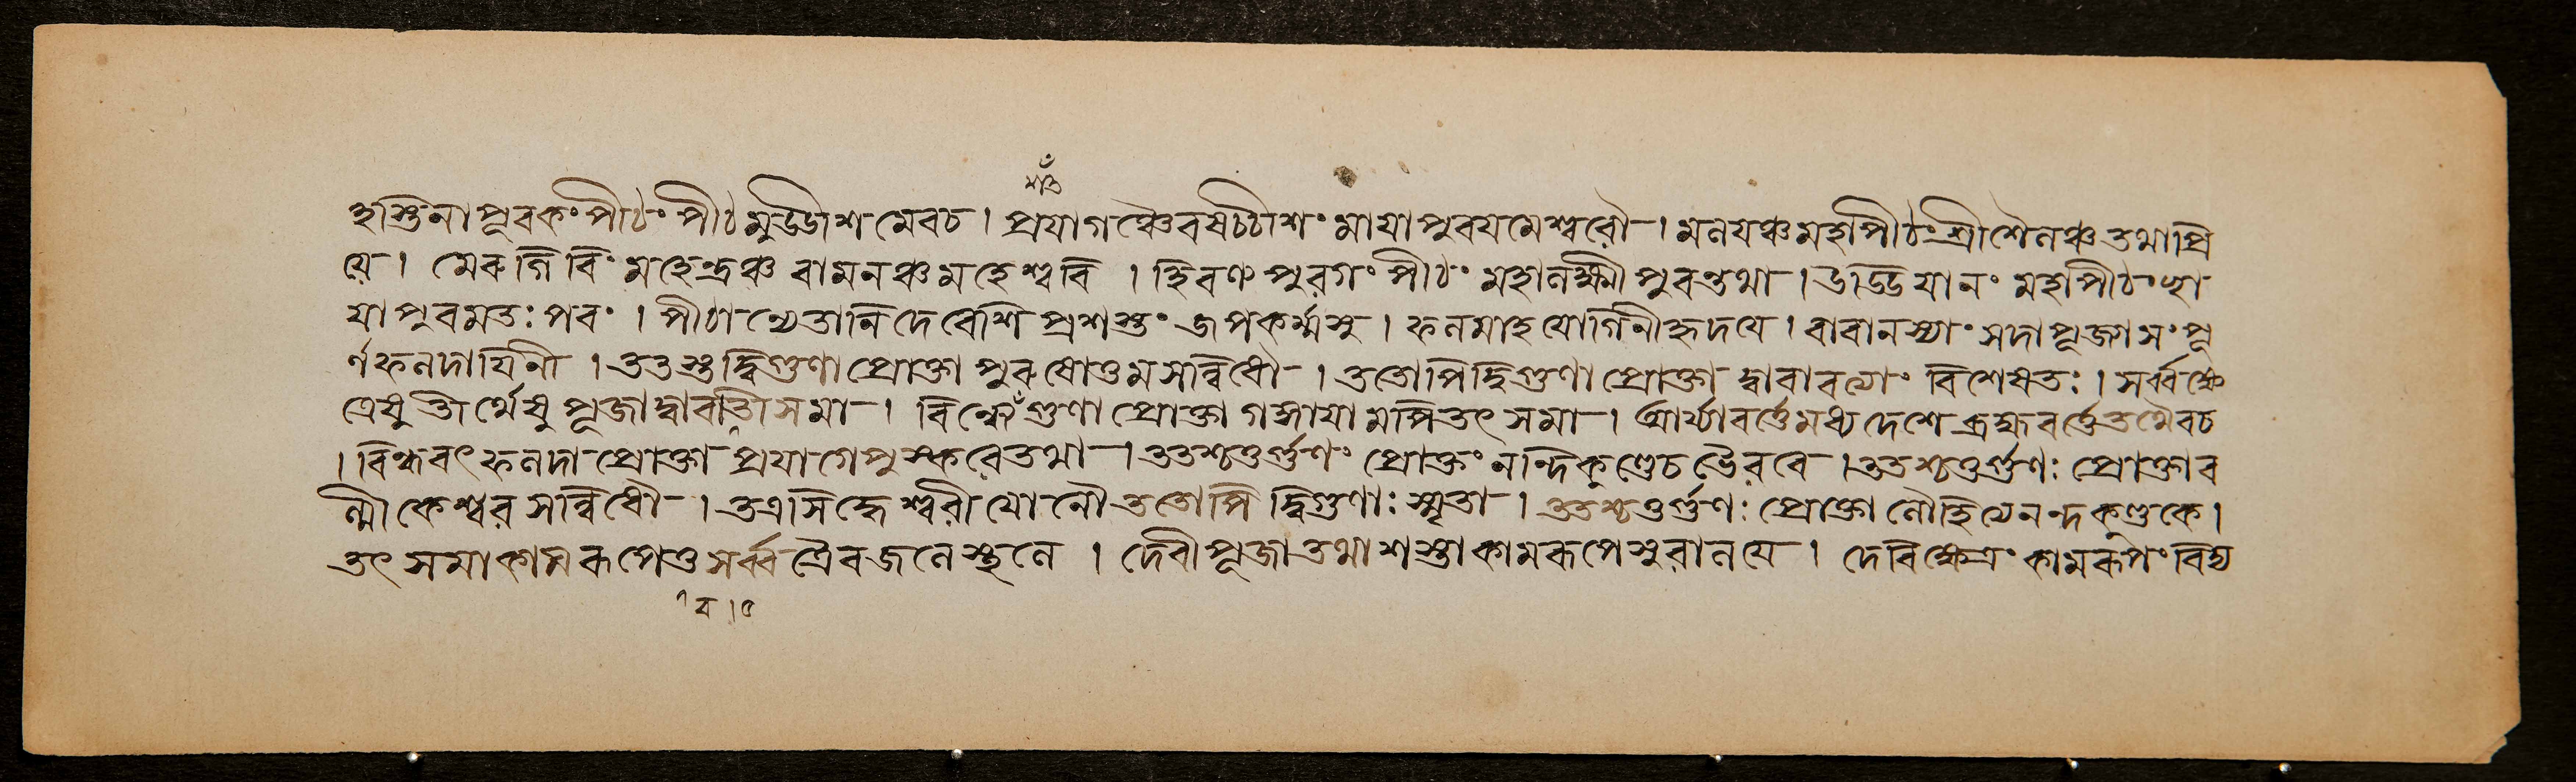 শত
হস্তিনাপূবকং পীঠং পীঠমুড্ডীশমেবচ। প্রযাগঞ্চৈবষষ্ঠীশং মাযাপুবযমেশ্বরৌ। মলযঞ্চমহাপীঠং শ্রীশৈলঞ্চতথাপ্রি
যে। মেৰুগিবিং মহেন্দ্রঞ্চ বামনঞ্চমহেশ্ববি। হিবণ্যপুরগং পীঠং মহালক্ষ্মীপুবন্তথা। উড্ডিযানং মহাপীঠং ছা
যাপুবমতঃপবং। পীঠান্যেতানিদেবেশি প্রশস্তং জপকর্ম্মসু। ফলমাহ যোগিনীহৃদযে। বাবানস্যাং সদাপূজাসংপূ
র্ণফলদাযিনী। ততস্তুদ্বিগুণাপ্রোক্তা পুৰুষোত্তমসন্নিধৌ। ততোপিদ্বিগুণাপ্রোক্তা দ্বাবাবত্যাং বিশেষতঃ। সর্ব্বক্ষে
ত্রেষুতীর্থেষুপূজাদ্বাবতীসমা। বিন্ধ্যেগুণাপ্রোক্তা গঙ্গাযামপিতৎসমা। আর্য্যাবর্ত্তেমধ্যদেশে ব্রহ্মবর্ত্তেতথৈবচ
। বিন্ধ্যবৎফলদাপ্রোক্তা প্রযাগেপুস্করেতথা। ততশ্চতুর্গুণং প্রোক্তং নন্দিকুণ্ডেচভৈরবে। ততশ্চতুর্গুণঃ প্রোক্তাব
ল্মীকেশ্বরসন্নিধৌ। তত্রসিদ্ধেশ্বরীযোনৌততোপি দ্বিগুণাঃস্মৃতা। ততশ্চতুর্গুণঃ প্রোক্তা লৌহিত্যেনন্দকুণ্ডকে।
তৎসমাকামৰূপেতুসর্ব্বত্রৈবজলেস্থলে। দেবীপূজাতথাশস্তাকামৰূপেসুরালযে। দেবিক্ষেত্রং কামৰূপং বিদ্য